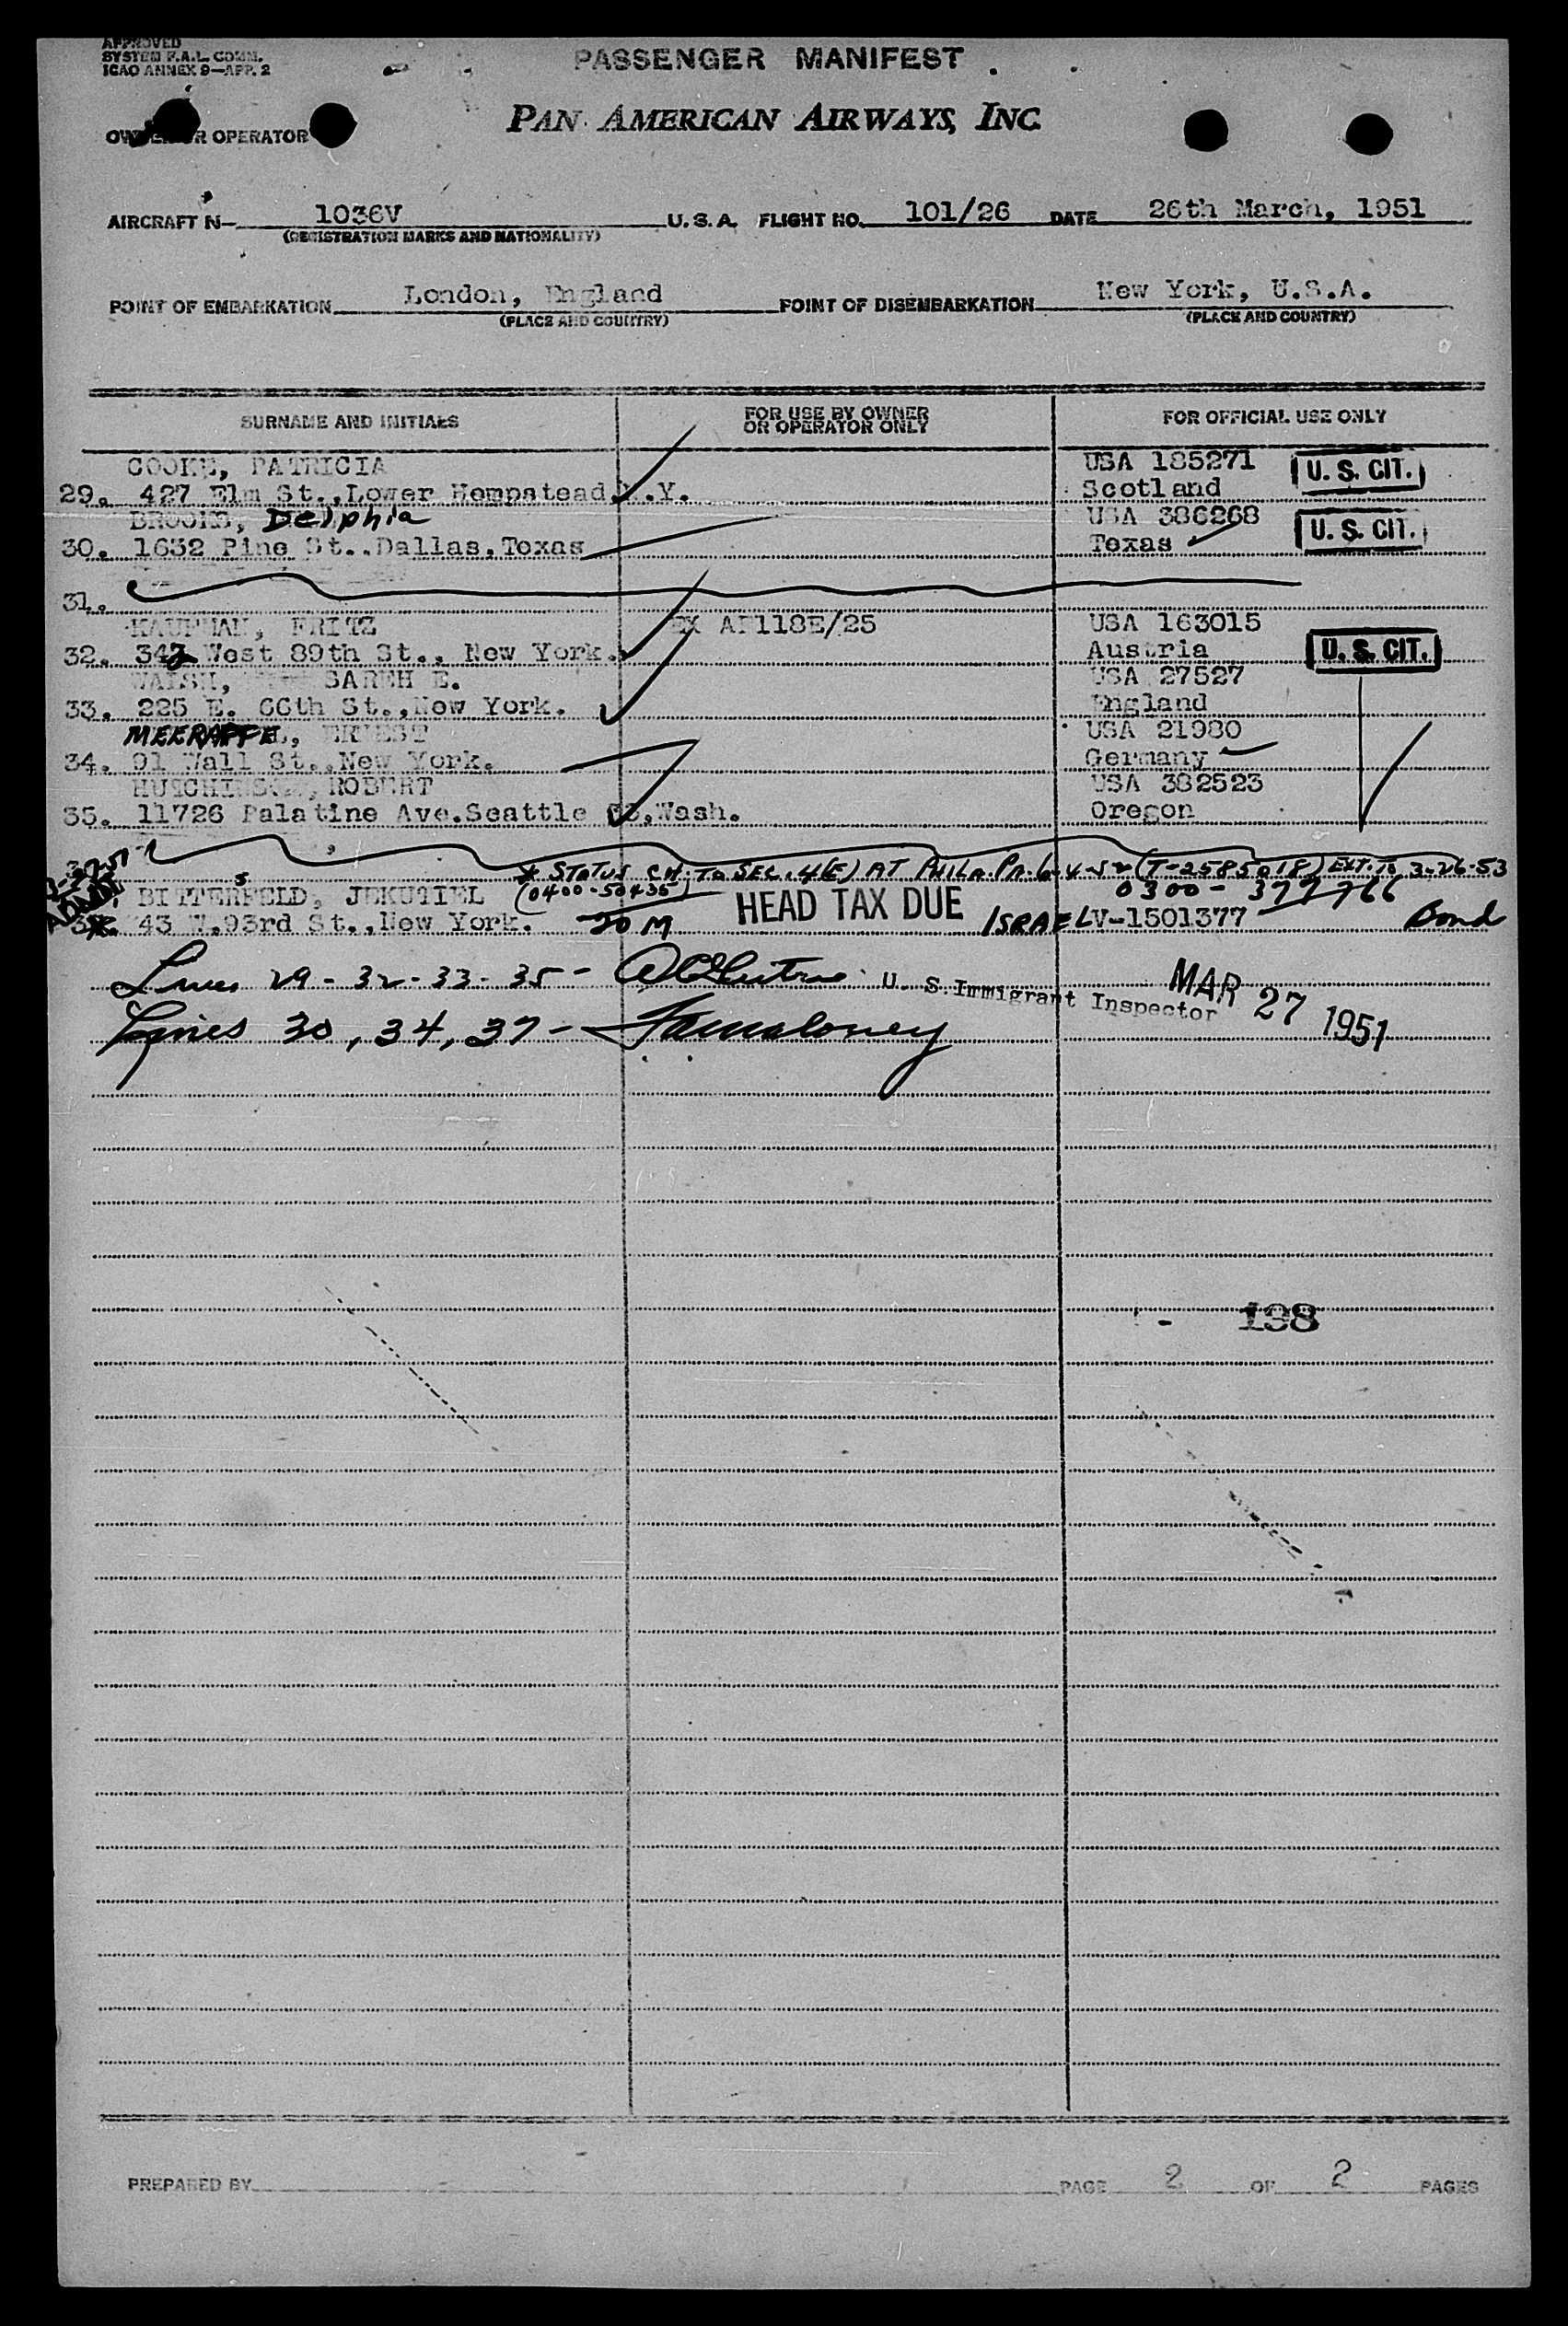 APPROVED
SYSTEM F.A.L. COMM.
ICAO ANNEX 9—APP. 2
PASSENGER MANIFEST
OWNER OR OPERATOR
PAN AMERICAN AIRWAYS, INC.
AIRCRAFT N— 1036V U. S. A. FLIGHT NO. 101/26 DATE 26th March, 1951
(REGISTRATION MARKS AND NATIONALITY)
POINT OF EMBARKATION London, England POINT OF DISEMBARKATION New York, U.S.A.
(PLACE AND COUNTRY) (PLACE AND COUNTRY)
SURNAME AND INITIALS FOR USE BY OWNER OR OPERATOR ONLY FOR OFFICIAL USE ONLY
COOKE, PATRICIA USA 185271 U. S. CIT.
29. 427 Elm St.,Lower Hempstead N.Y. Scotland
BROOKS, Delphia USA 386268 U. S. CIT.
30. 1632 Pine St..Dallas.Texas Texas
31.
KAUFMAN, FRITZ EX AF118E/25 USA 163015
32. 342 West 89th St., New York. Austria U. S. CIT.
WALSH, SAREH E. USA 27527
33. 225 E. 66th St.,New York. England
MEERAPFEL, ERNEST USA 21980
34. 91 Wall St.,New York. Germany
HUTCHINSON, ROBERT USA 382523
35. 11726 Palatine Ave.Seattle 33,Wash. Oregon
* STATUS CH. TO SEC. 4(E) AT PHILA. PA. (T-2585018) EXT. TO 3-26-53
BITTERSFELD, JEKUTIEL (0400-50435) HEAD TAX DUE 0300-377766
43 W.93rd St.,New York. 20 M ISRAEL V-1501377 Bond
Lines 29 - 32 - 33 - 35 - U. S. Immigrant Inspector MAR 27 1951
Lines 30, 34, 37 - Maloney
- 138
PREPARED BY PAGE 2 OF 2 PAGES